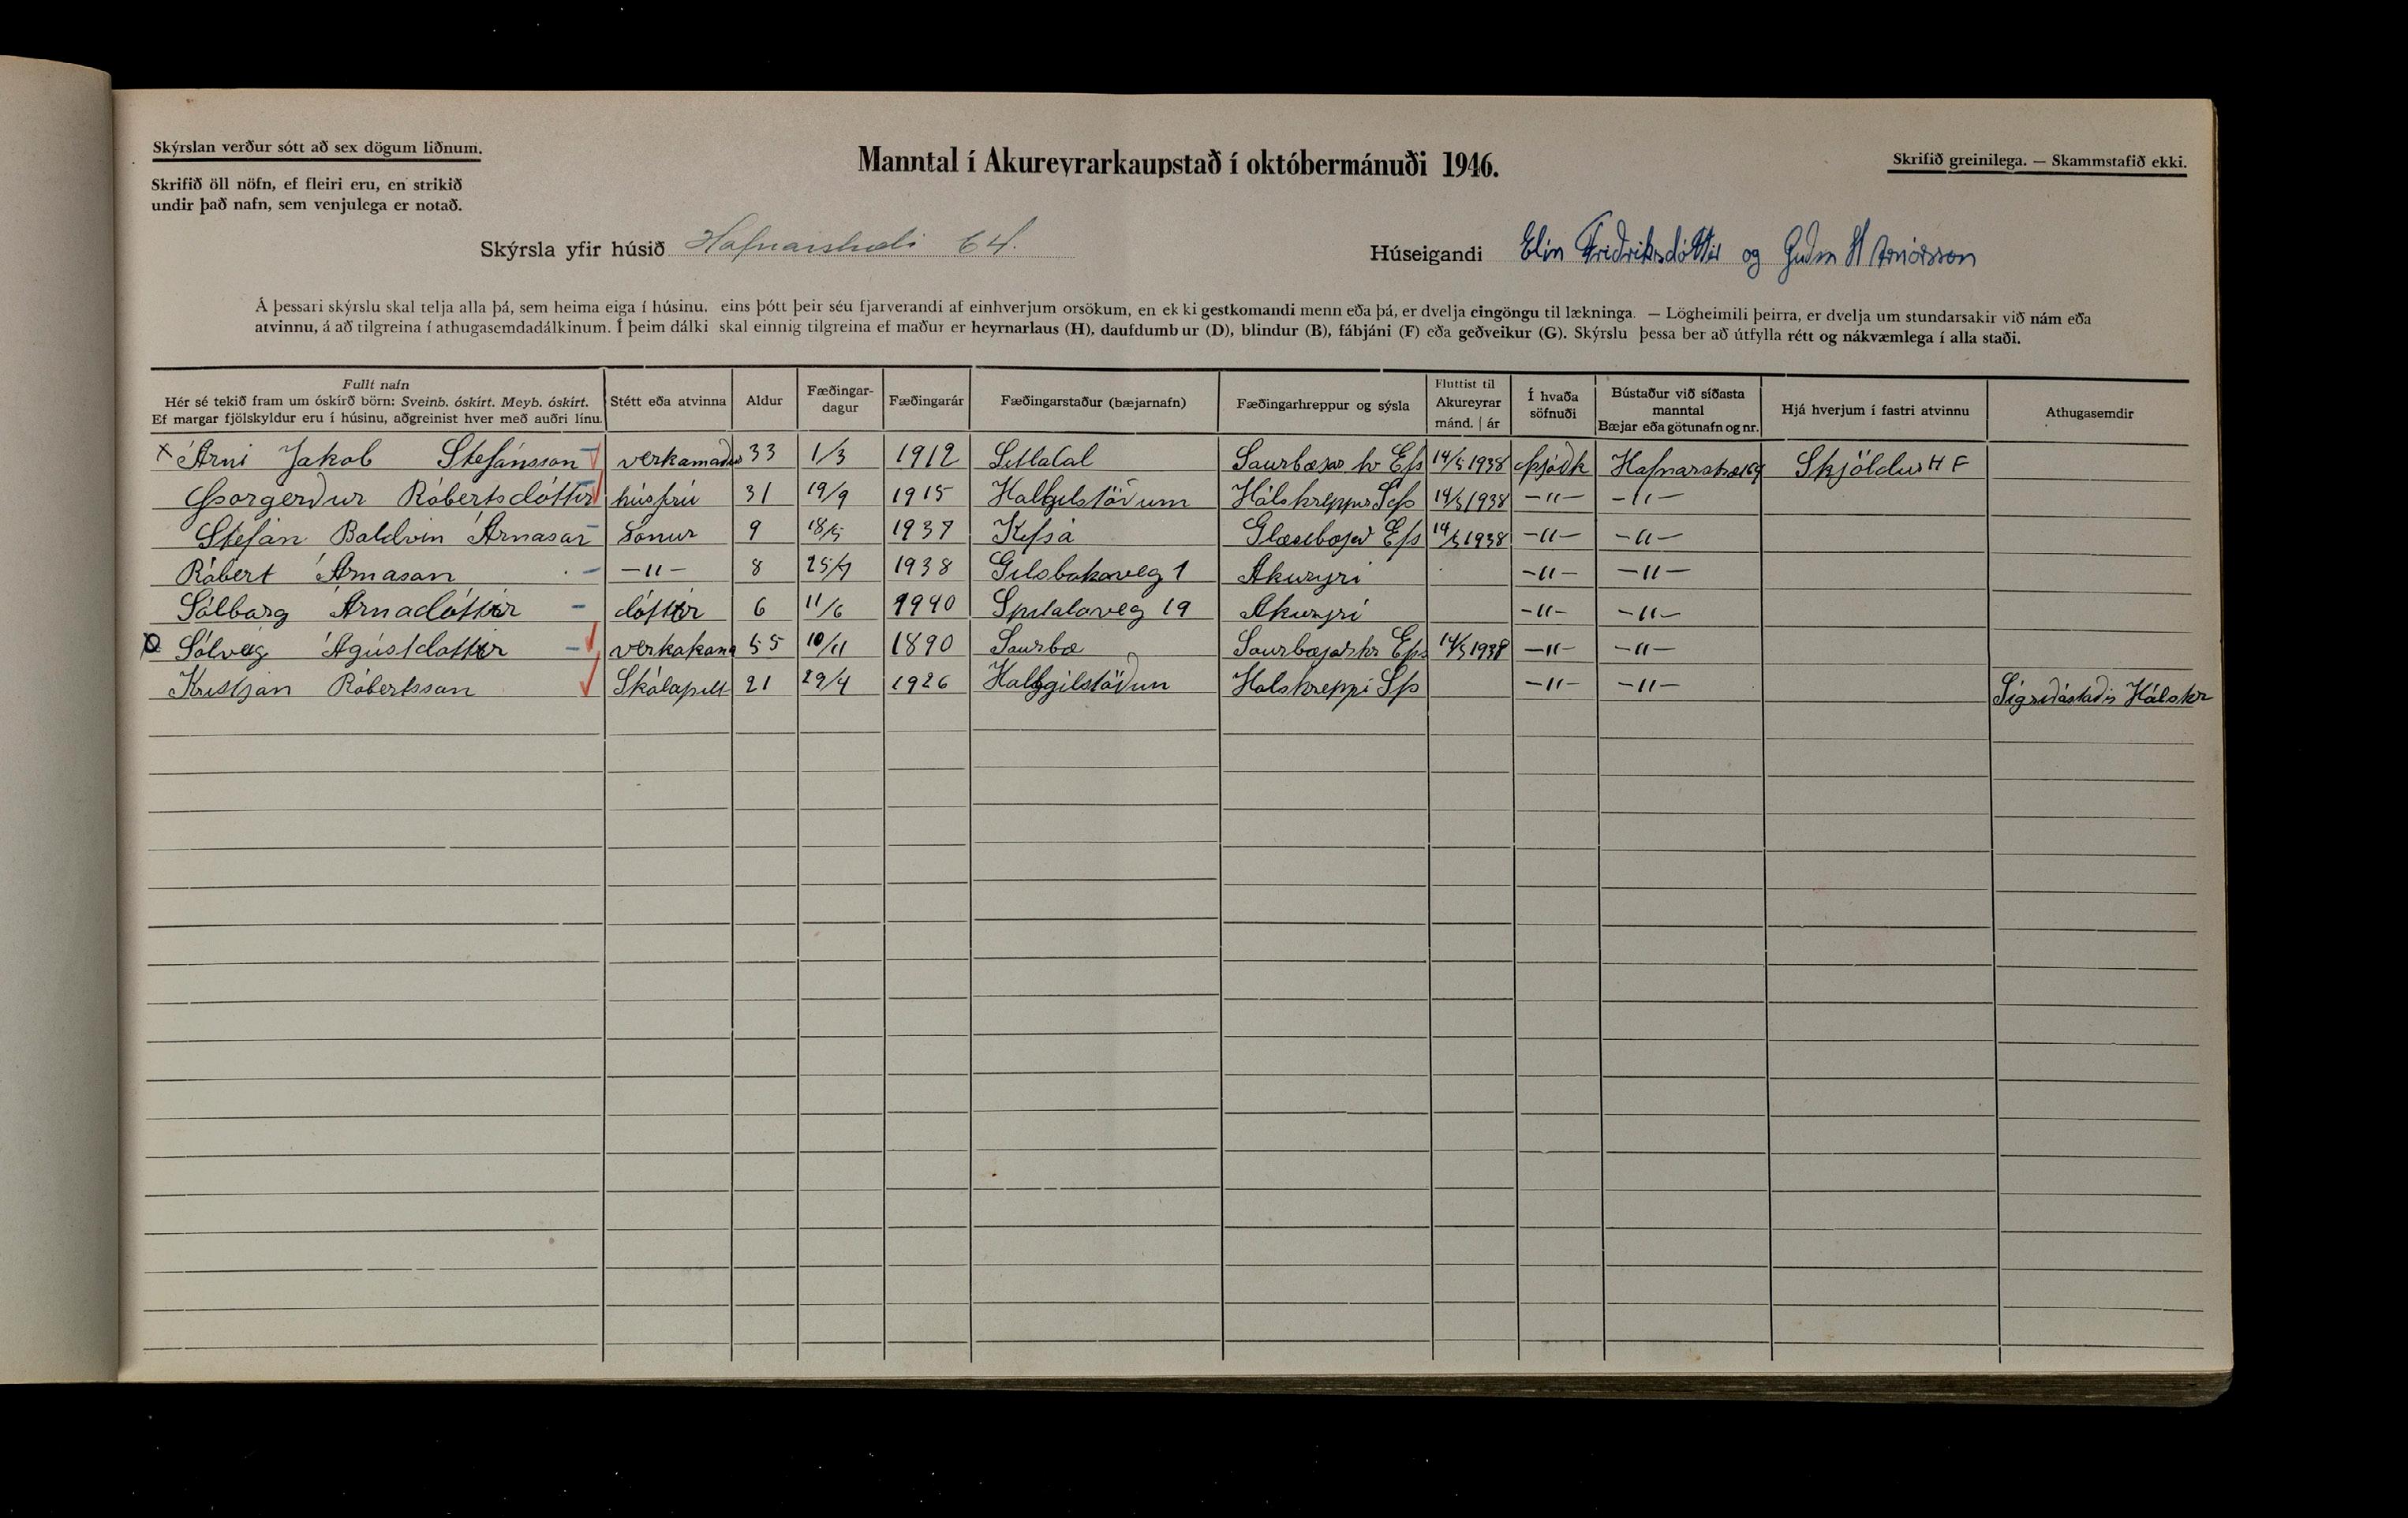 Skýrslan verður sótt að sex dögum liðnum.
Skrifið öll nöfn, ef fleiri eru, en strikið
undir það nafn, sem venjulega er notað.
Manntal í Akureyrarkaupstað í októbermánuði 1946.
Skrifið greinilega. — Skammstafið ekki.
Skýrsla yfir húsið Hafnarstræti 64.
Húseigandi Elín Friðriksdóttir og Guðm H Arnórsson
Á þessari skýrslu skal telja alla þá, sem heima eiga í húsinu, eins þótt þeir séu fjarverandi af einhverjum orsökum, en ekki gestkomandi menn eða þá, er dvelja eingöngu til lækninga. — Lögheimili þeirra, er dvelja um stundarsakir við nám eða
atvinnu, á að tilgreina í athugasemdadálkinum. Í þeim dálki skal einnig tilgreina ef maður er heyrnarlaus (H), daufdumbur (D), blindur (B), fábjáni (F) eða geðveikur (G). Skýrslu þessa ber að útfylla rétt og nákvæmlega í alla staði.
Fullt nafn
Hér sé tekið fram um óskírð börn: Sveinb. óskírt. Meyb. óskírt.
Ef margar fjölskyldur eru í húsinu, aðgreinist hver með auðri línu.
Stétt eða atvinna
Aldur
Fæðingar-
dagur
Fæðingarár
Fæðingarstaður (bæjarnafn)
Fæðingarhreppur og sýsla
Fluttist til
Akureyrar
mánd. | ár
Í hvaða
söfnuði
Bústaður við síðasta
manntal
Bæjar eða götunafn og nr.
Hjá hverjum í fastri atvinnu
Athugasemdir
x Árni Jakob Stefánsson verkamaður 33 1/3 1912 Litladal Saurbæjar hr Efs 14/5 1938 þjóðk Hafnarstræ 64 Skjöldur H F
Þorgerður Róbertsdóttir húsfrú 31 19/9 1915 Hallgilstöðum Hálshreppur S þs 14/5 1938 —"— —"—
Stefán Baldvin Árnason sonur 9 18/5 1937 Kífsá Glæsibæjar Efs 14/5 1938 —"— —"—
Róbert Árnason —"— 8 25/7 1938 Gilsbakaveg 1 Akureyri —"— —"—
Sólborg Árnadóttir dóttir 6 11/6 1940 Spitalaveg 19 Akureyri —"— —"—
Sólveig Ágústdóttir verkakona 55 10/11 1890 Saurbæ Saurbæjarhr Efs 14/5 1938 —"— —"—
Kristjan Róbertsson Skólapilt 21 29/4 1926 Hallgilstöðum Halshreppi S þs —"— —"— Sigríðastaðir Hálshr